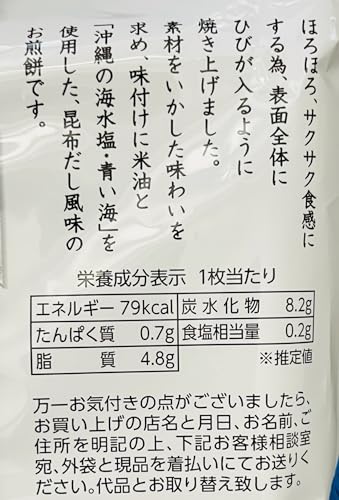 ほろほろ、サクサク食感に
する為、表面全体に
ひびが入るように
焼き上げました。
素材をいかした味わいを
求め、味付けに米油と
「沖縄の海水塩・青い海」を
使用した、昆布だし風味の
お煎餅です。
栄養成分表示 1枚当たり
エネルギー 79kcal 炭水化物 8.2g
たんぱく質 0.7g 食塩相当量 0.2g
脂質 4.8g ※推定値
万一お気付きの点がございましたら、
お買い上げの店名と月日、お名前、ご
住所を明記の上、下記お客様相談室
宛、外袋と現品を着払いにてお送りく
ださい。代品とお取り替え致します。